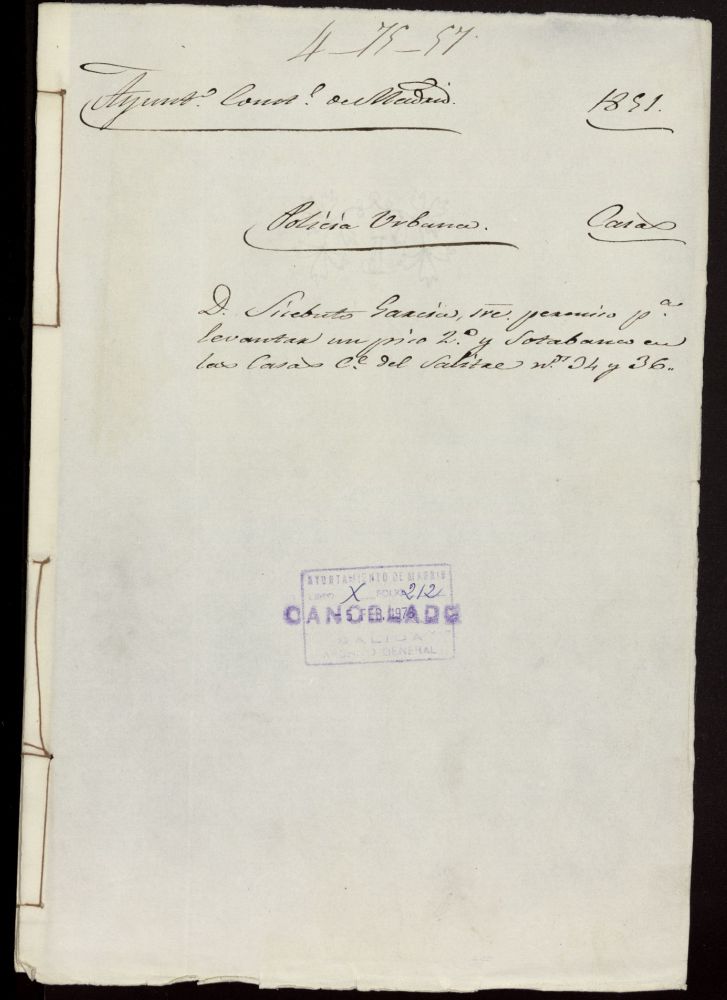 4-75-57
Ayunt.º Const.l de Madrid. 1851.
Policía Urbana. Casas
D. Sisebuto García, sre. permiso p.ª
levantar un piso 2.º y Sotabanco en
las Casas C.e del Salitre n.os 34 y 36.
AYUNTAMIENTO DE MADRID
LIBRO X FOLIO 212
CANCELADO
FEB. 1976
SALIDA
ARCHIVO GENERAL